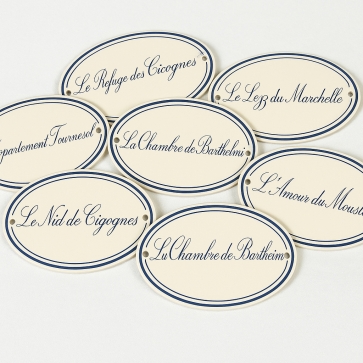 Le Refuge des Cicognes
Le Lezz du Marchelle
Appartement Tournesol
La Chambre de Barthelmi
L'Amour du Moust
Le Nid de Cigognes
La Chambre de Bartheim